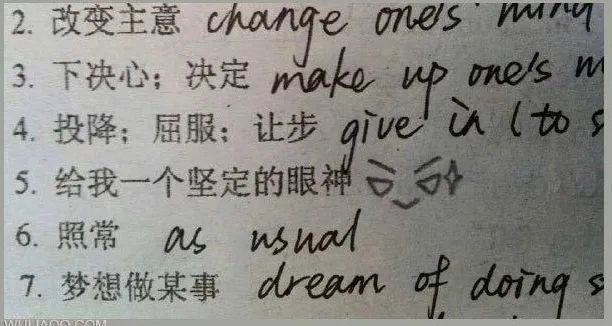 2. 改变主意 change one's mind
3. 下决心；决定 make up one's m
4. 投降；屈服；让步 give in (to s
5. 给我一个坚定的眼神
6. 照常 as usual
7. 梦想做某事 dream of doing s